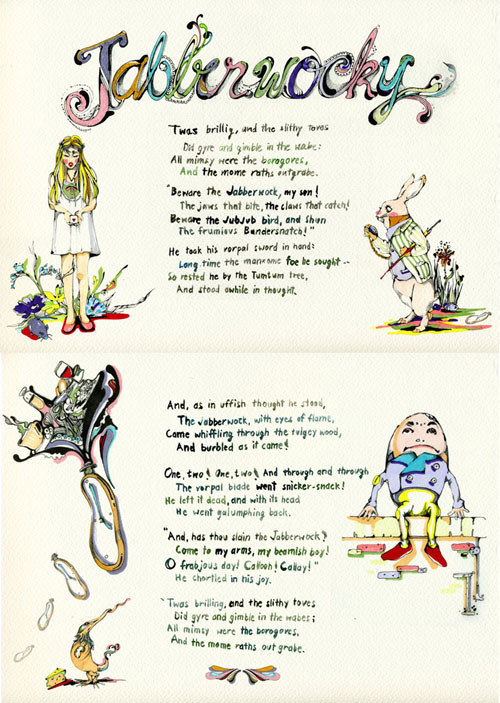 Jabberwocky
Twas brillig, and the slithy toves
Did gyre and gimble in the wabe:
All mimsy were the borogoves,
And the mome raths outgrabe.
"Beware the Jabberwock, my son!
The jaws that bite, the claws that catch!
Beware the Jubjub bird, and shun
The frumious Bandersnatch!"
He took his vorpal sword in hand:
Long time the manxome foe he sought --
So rested he by the Tumtum tree,
And stood awhile in thought.
And, as in uffish thought he stood,
The Jabberwock, with eyes of flame,
Came whiffling through the tulgey wood,
And burbled as it came!
One, two! One, two! And through and through
The vorpal blade went snicker-snack!
He left it dead, and with its head
He went galumphing back.
"And, has thou slain the Jabberwock?
Come to my arms, my beamish boy!
O frabjous day! Callooh! Callay!"
He chortled in his joy.
`Twas brilling, and the slithy toves
Did gyre and gimble in the wabes;
All mimsy were the borogoves,
And the mome raths outgrabe.